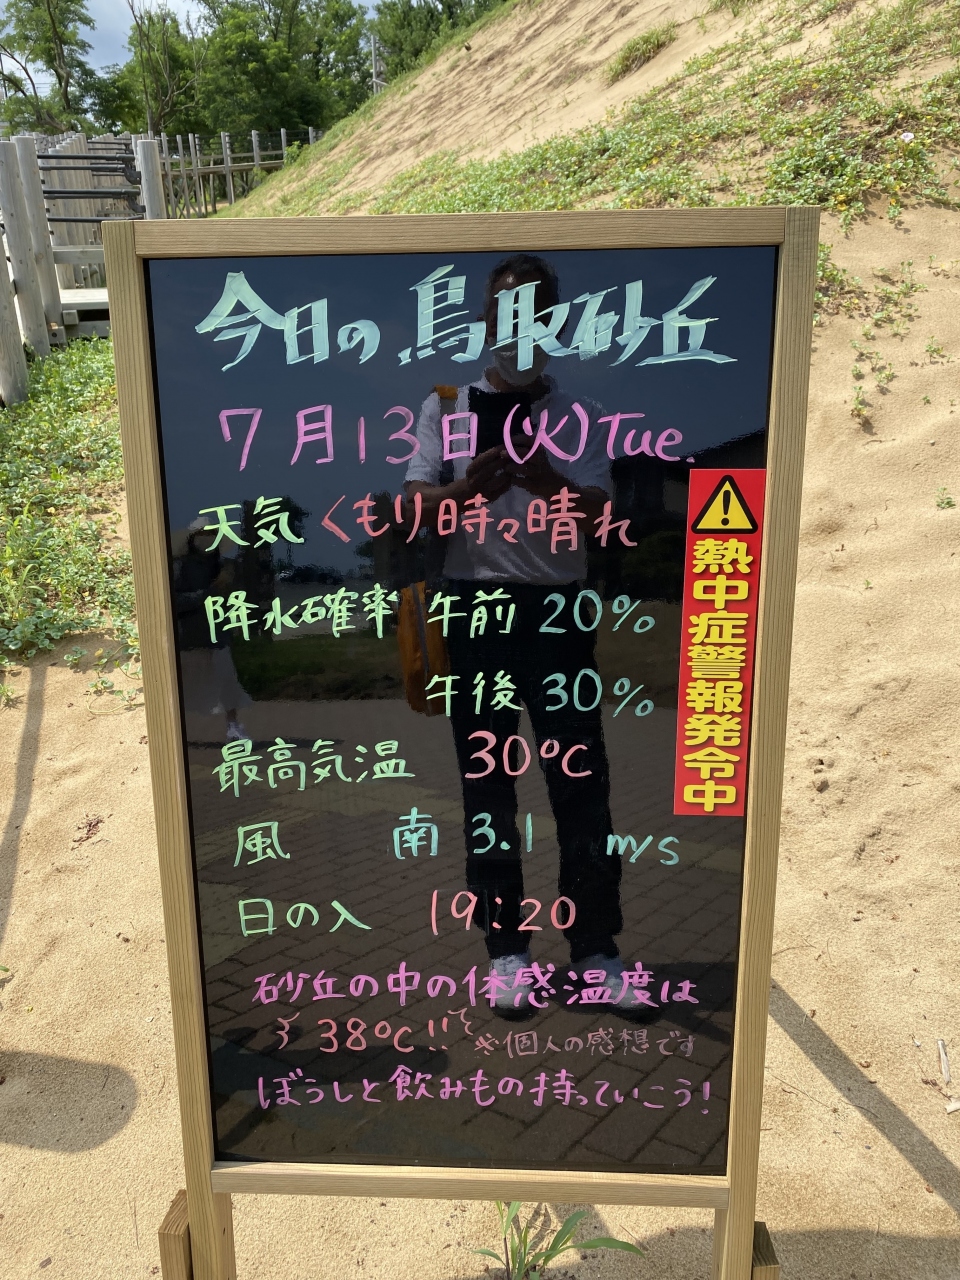 今日の鳥取砂丘
7月13日(火)Tue.
天気 くもり時々晴れ
降水確率 午前 20%
午後 30%
最高気温 30℃
風 南 3.1 m/s
日の入 19:20
砂丘の中の体感温度は
38℃!! ※個人の感想です
ぼうしと飲みもの持っていこう!
熱中症警報発令中